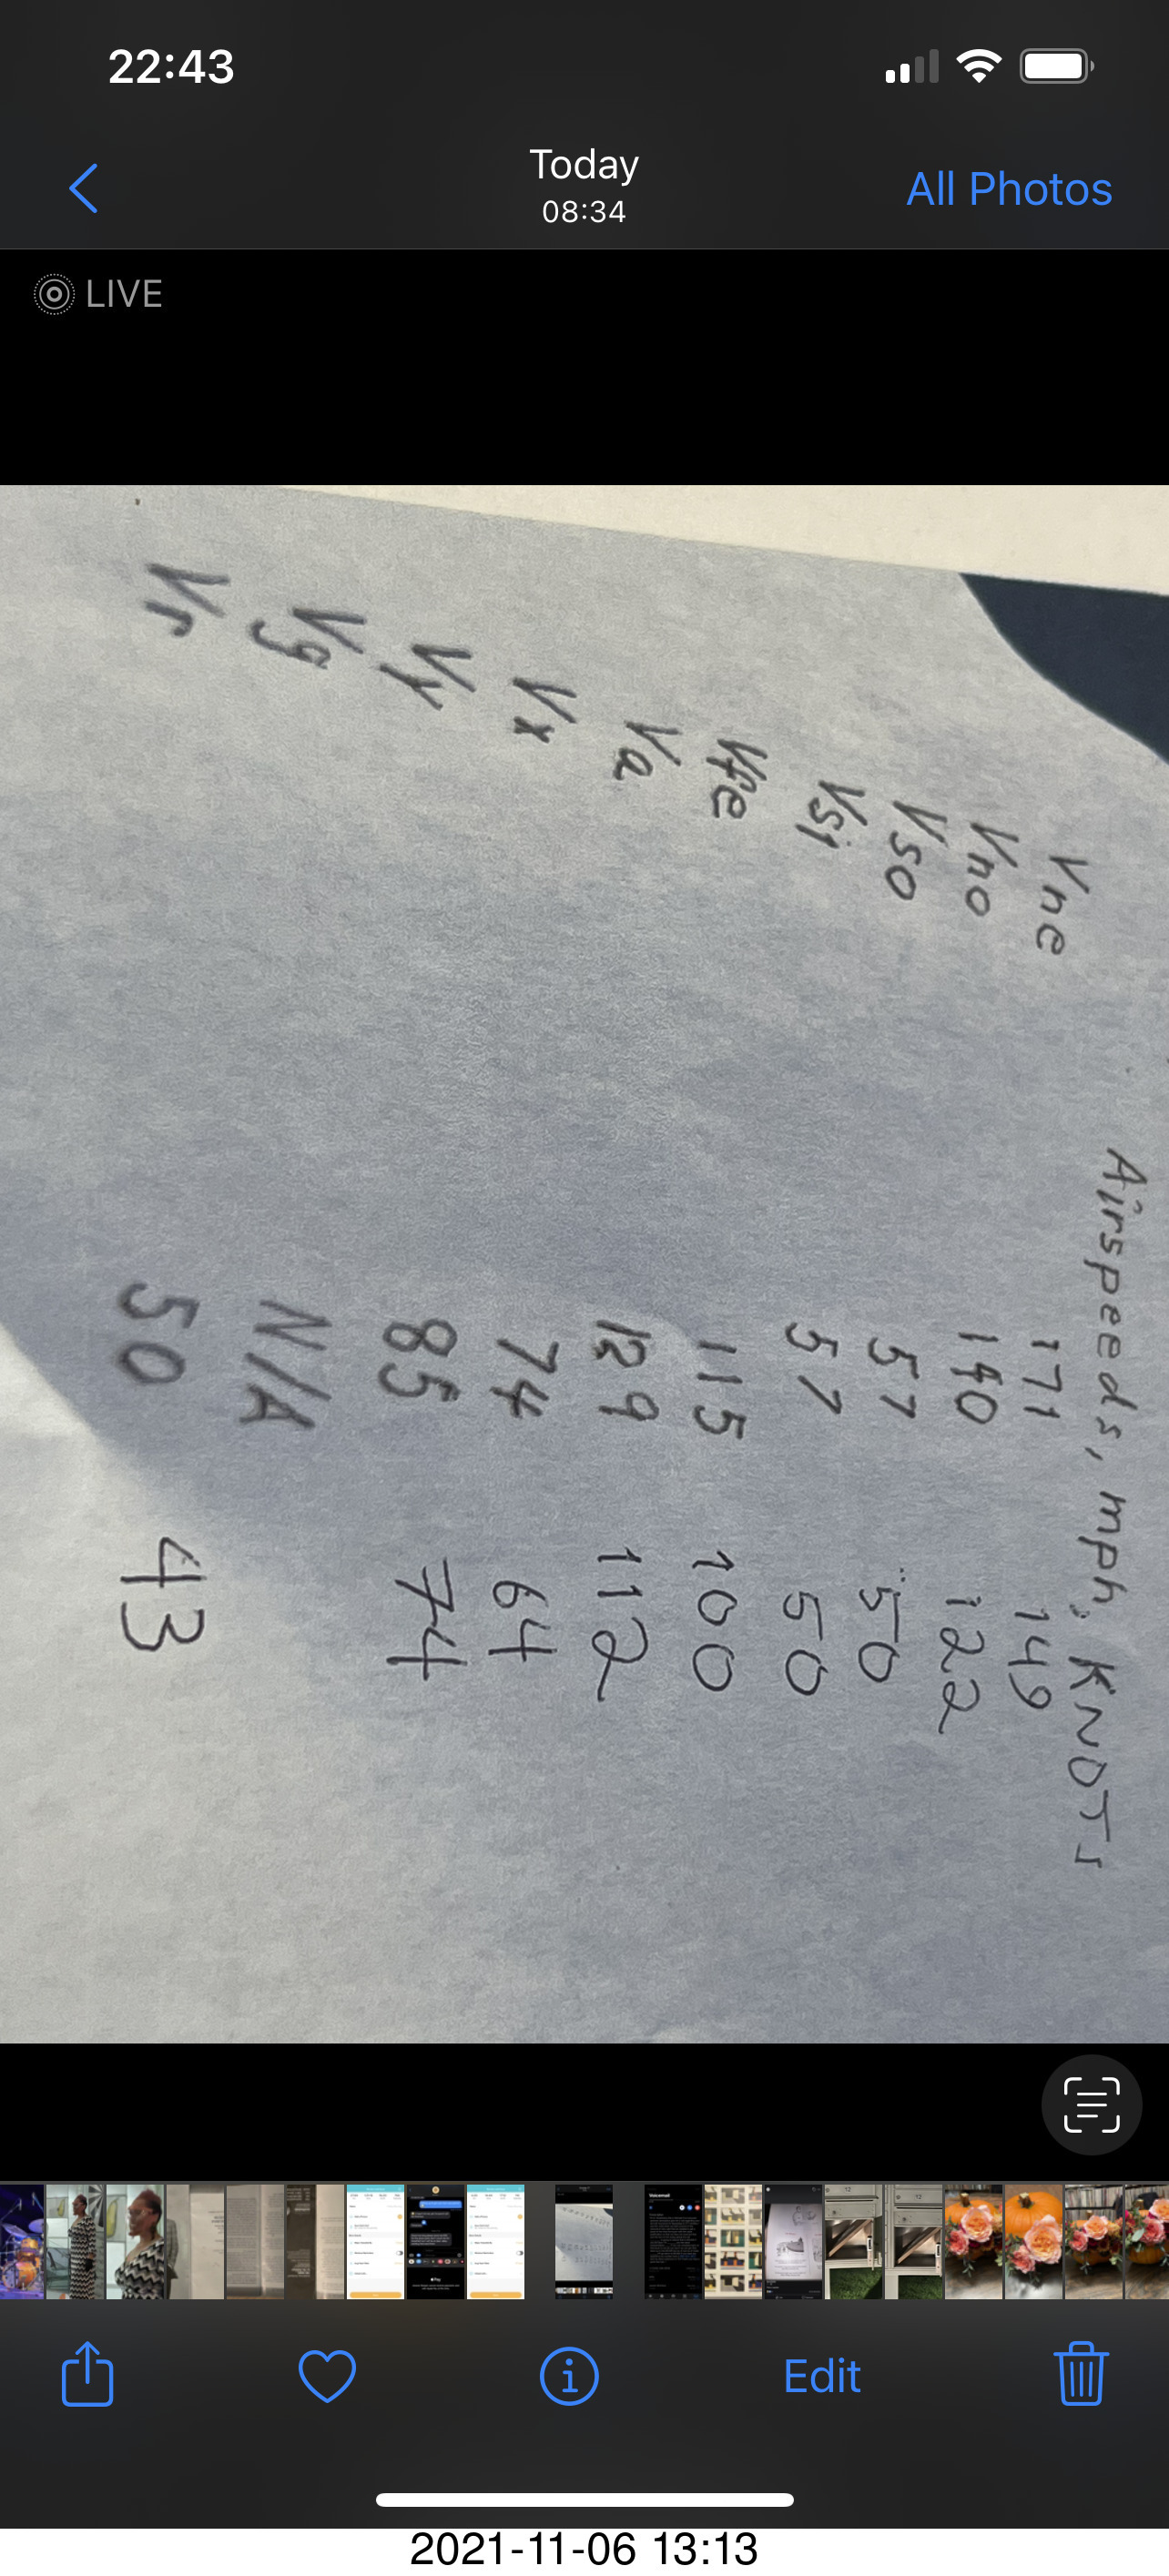 22:43
Today
08:34
All Photos
LIVE
Airspeeds, mph, KNOTS
Vne 171 149
Vno 140 122
Vso 57 50
Vs1 57 50
Vfe 115 100
Va 129 112
Vx 74 64
Vy 85 74
Vg N/A
Vr 50 43
Edit
2021-11-06 13:13